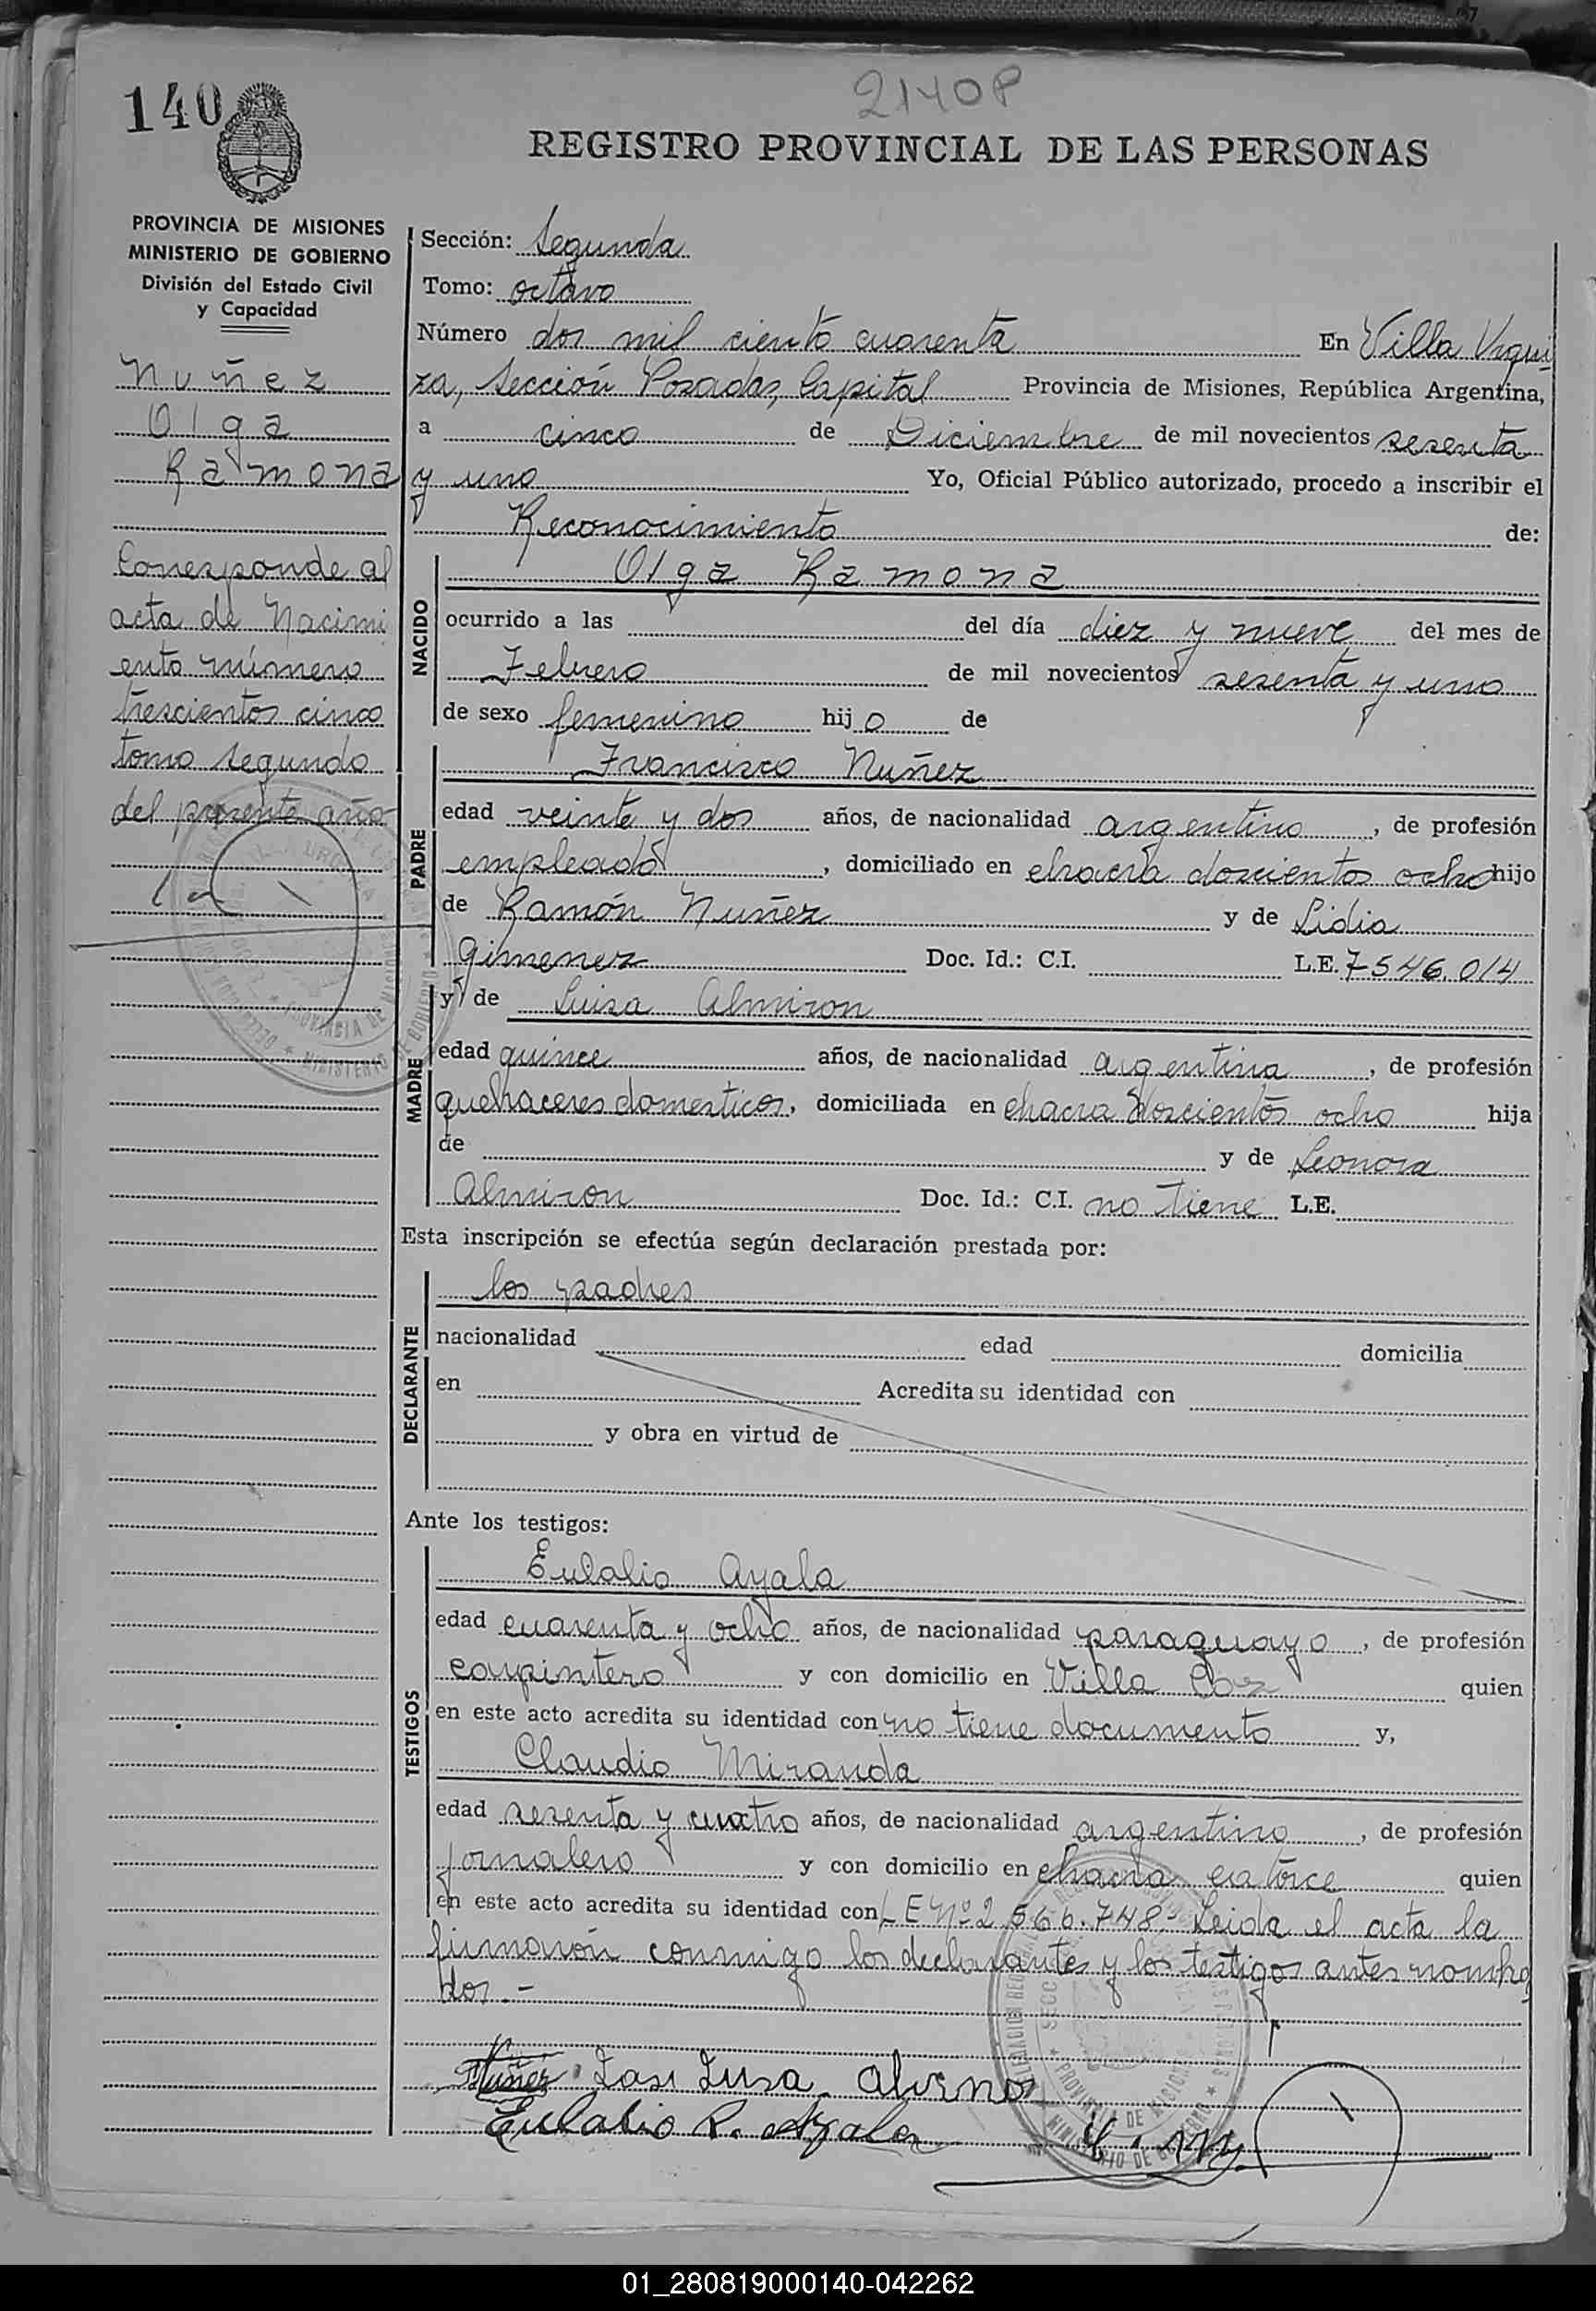 140
2140P
REGISTRO PROVINCIAL DE LAS PERSONAS
PROVINCIA DE MISIONES
MINISTERIO DE GOBIERNO
División del Estado Civil
y Capacidad
Nuñez
Olga
Ramona
Corresponde al
acta de Nacimi
ento número
trescientos cinco
tomo segundo
del presente año
Sección: Segunda
Tomo: octavo
Número dos mil ciento cuarenta En Villa Urqui
za, Sección Posadas, Capital Provincia de Misiones, República Argentina,
a cinco de Diciembre de mil novecientos sesenta
y uno Yo, Oficial Público autorizado, procedo a inscribir el
Reconocimiento de:
NACIDO
Olga Ramona
ocurrido a las del día diez y nueve del mes de
Febrero de mil novecientos sesenta y uno
de sexo femenino hijo de
PADRE
Francisco Nuñez
edad veinte y dos años, de nacionalidad argentino, de profesión
empleado, domiciliado en chacra doscientos ocho hijo
de Ramón Nuñez y de Lidia
Gimenez Doc. Id.: C.I. L.E. 7546.014
MADRE
y de Luisa Almiron
edad quince años, de nacionalidad argentina, de profesión
quehaceres domesticos, domiciliada en chacra doscientos ocho hija
de y de Leonora
Almiron Doc. Id.: C.I. no tiene L.E.
Esta inscripción se efectúa según declaración prestada por:
DECLARANTE
los padres
nacionalidad edad domicilia
en Acredita su identidad con
y obra en virtud de
Ante los testigos:
TESTIGOS
Eulalio Ayala
edad cuarenta y ocho años, de nacionalidad paraguayo, de profesión
carpintero y con domicilio en Villa quien
en este acto acredita su identidad con no tiene documento y,
Claudio Miranda
edad sesenta y cuatro años, de nacionalidad argentino, de profesión
jornalero y con domicilio en chacra catorce quien
en este acto acredita su identidad con LE Nº 2.566.748- Leida el acta la
firmaron conmigo los declarantes y los testigos antes nombra
dos.-
Nuñez
Eulalio R. Ayala
01_280819000140-042262